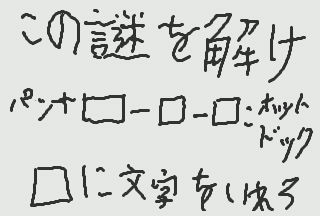 この謎を解け
パッナ□ー□ー□:ホット
ドック
□に文字をいれろ